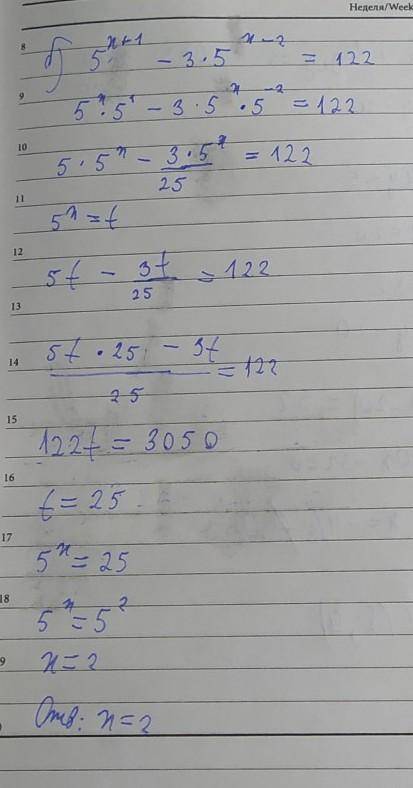 Неделя/Week
8
б) 5^{x+1} - 3·5^{x-2} = 122
9
5^x·5^1 - 3·5^x·5^{-2} = 122
10
5·5^x - \frac{3·5^x}{25} = 122
11
5^x = t
12
5t - \frac{3t}{25} = 122
13
14
\frac{5t·25 - 3t}{25} = 122
15
122t = 3050
16
t = 25
17
5^x = 25
18
5^x = 5^2
9
x = 2
Отв: x = 2